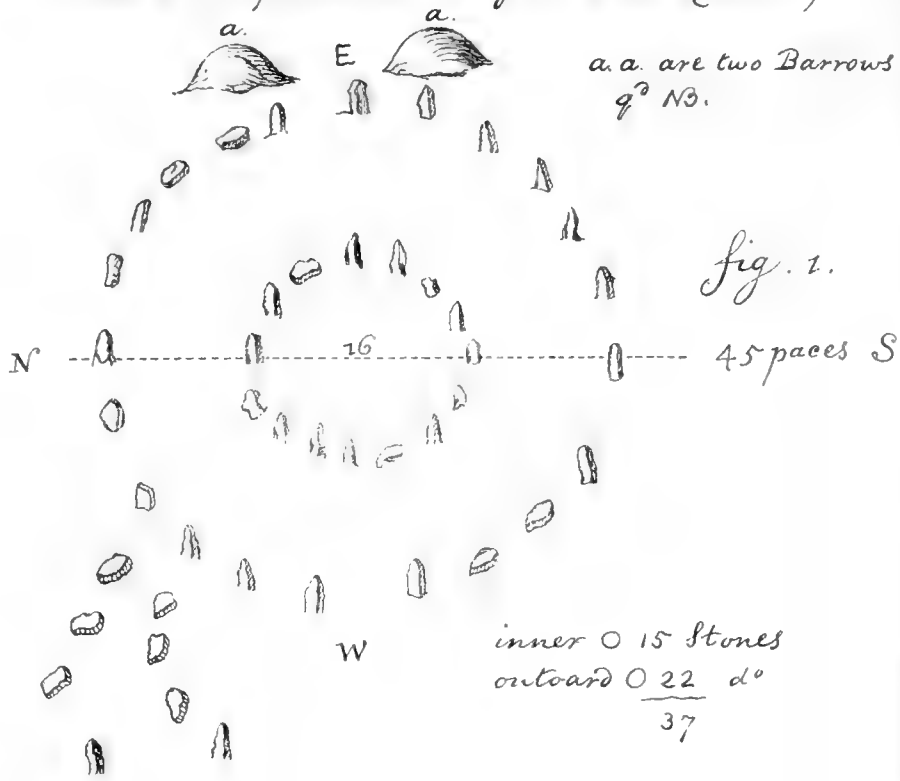 a.
a.
E
a.a. are two Barrows
qᵈ NB.
fig. 1.
N
16
45 paces S
W
inner O 15 Stones
outward O 22 dᵒ
37